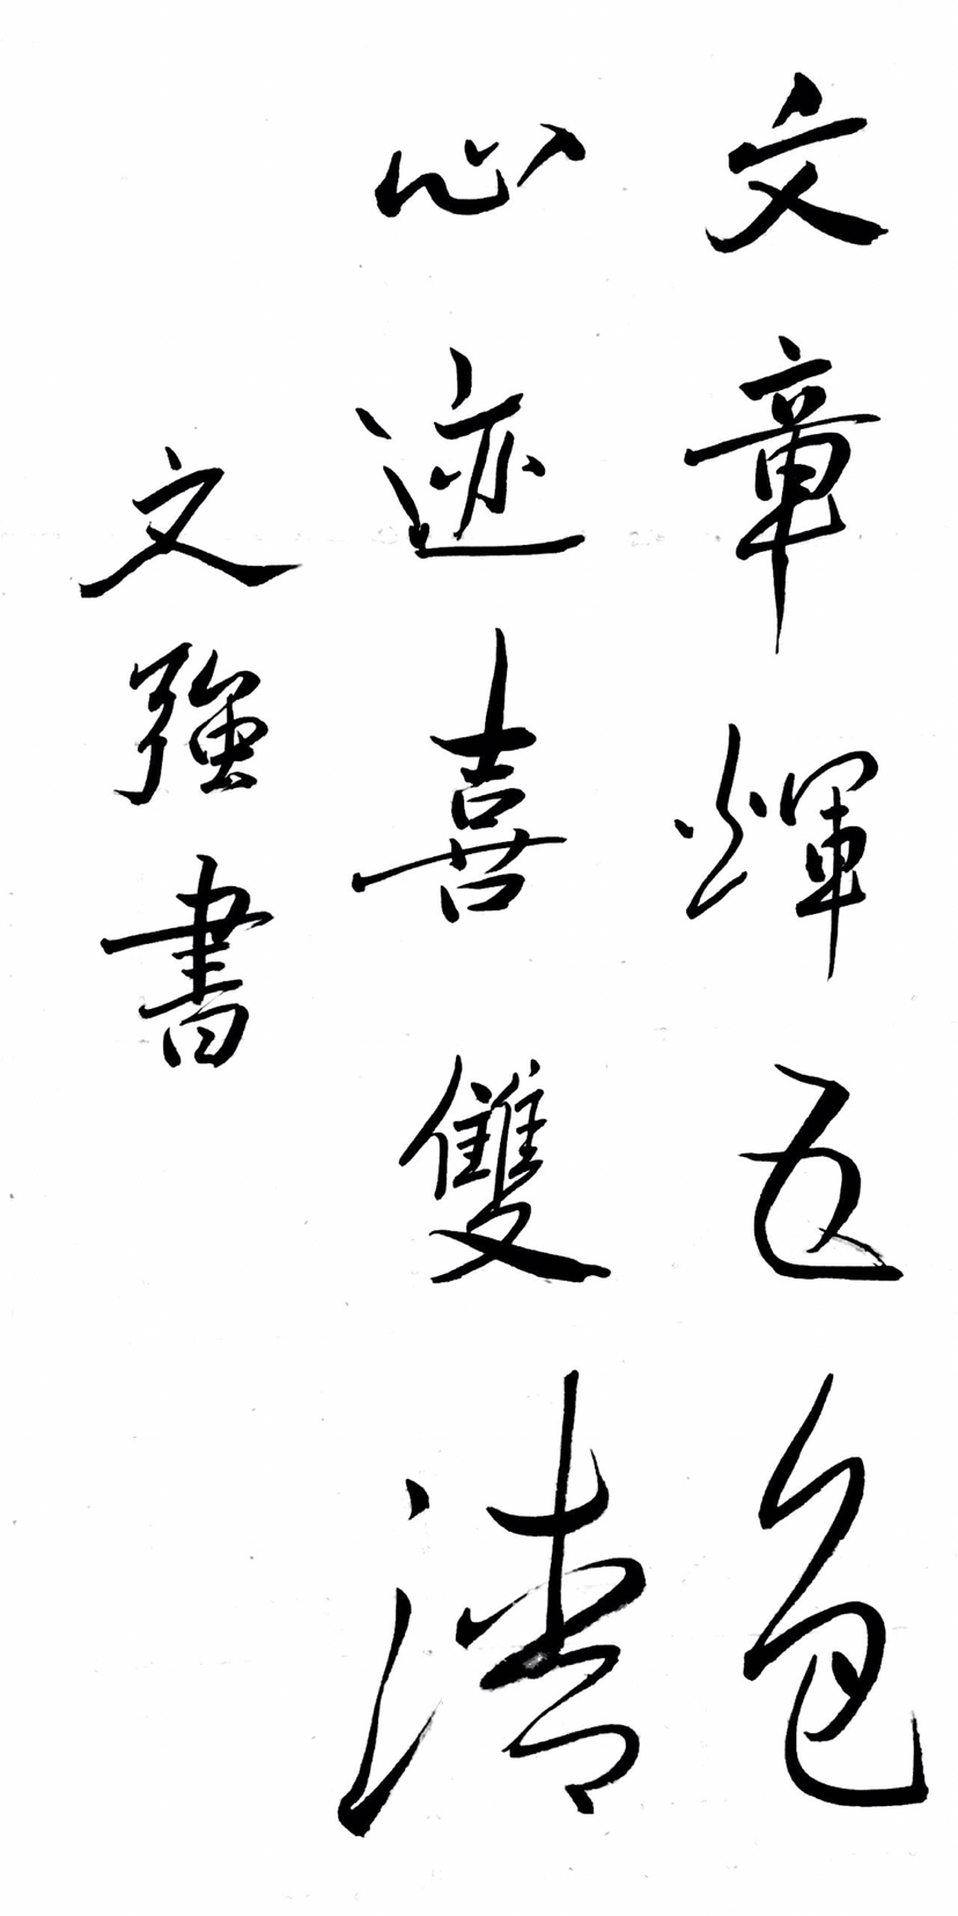 文章煇五色
心迹喜雙清
文強書